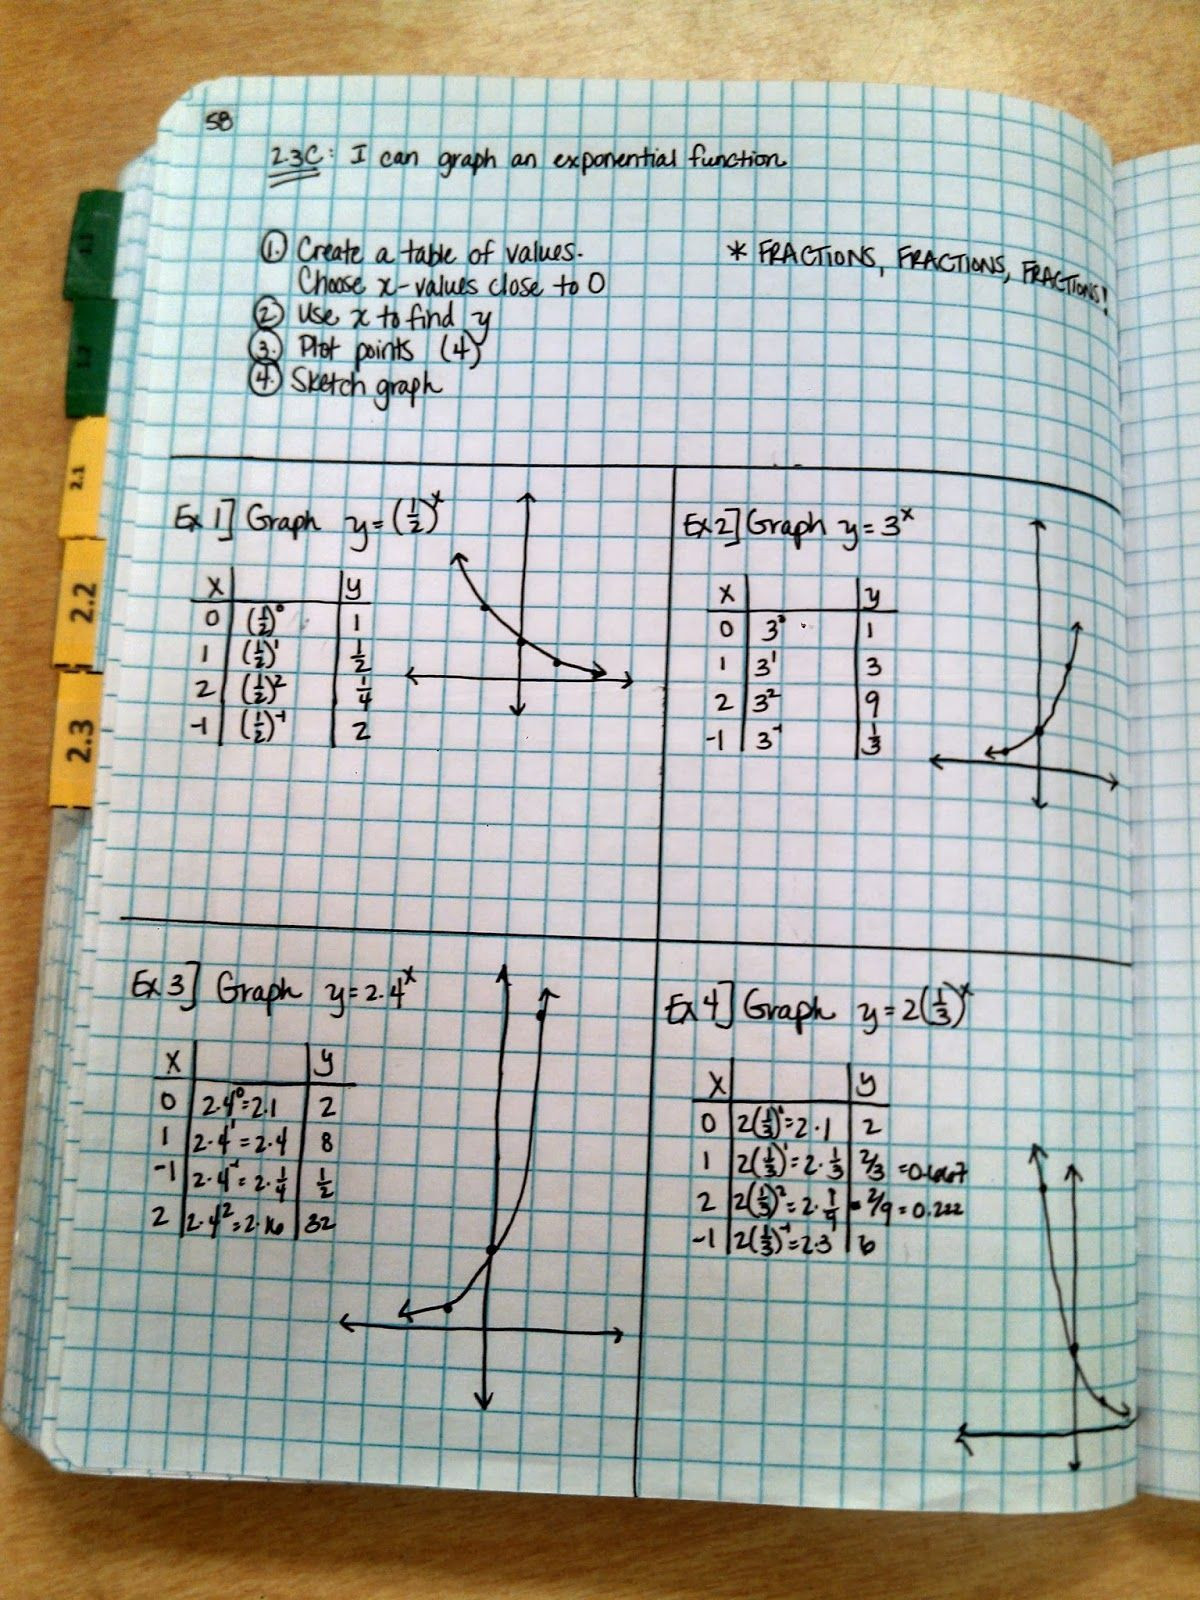 58
2.3C: I can graph an exponential function
① Create a table of values.
Choose x-values close to 0
② Use x to find y
③ Plot points (4)
④ Sketch graph
* FRACTIONS, FRACTIONS, FRACTIONS!
1.1
1.2
2.1
2.2
2.3
Ex 1] Graph y = (1/2)^x
x | | y
0 | (1/2)^0 | 1
1 | (1/2)^1 | 1/2
2 | (1/2)^2 | 1/4
-1 | (1/2)^-1 | 2
Ex 2] Graph y = 3^x
x | | y
0 | 3^0 | 1
1 | 3^1 | 3
2 | 3^2 | 9
-1 | 3^-1 | 1/3
Ex 3] Graph y = 2·4^x
x | | y
0 | 2·4^0 = 2·1 | 2
1 | 2·4^1 = 2·4 | 8
-1 | 2·4^-1 = 2·1/4 | 1/2
2 | 2·4^2 = 2·16 | 32
Ex 4] Graph y = 2(1/3)^x
x | | y
0 | 2(1/3)^0 = 2·1 | 2
1 | 2(1/3)^1 = 2·1/3 | 2/3 = 0.667
2 | 2(1/3)^2 = 2·1/9 | = 2/9 = 0.222
-1 | 2(1/3)^-1 = 2·3 | 6